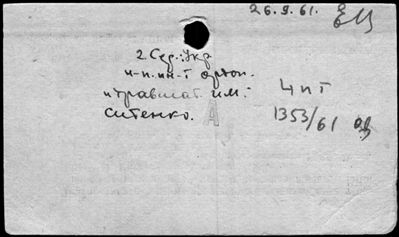 26.9.61.
2. Сер.: Укр
н-и. ин-т ортоп.
и травмат. им.
Ситенко.
ЧпТ
1353/61
А